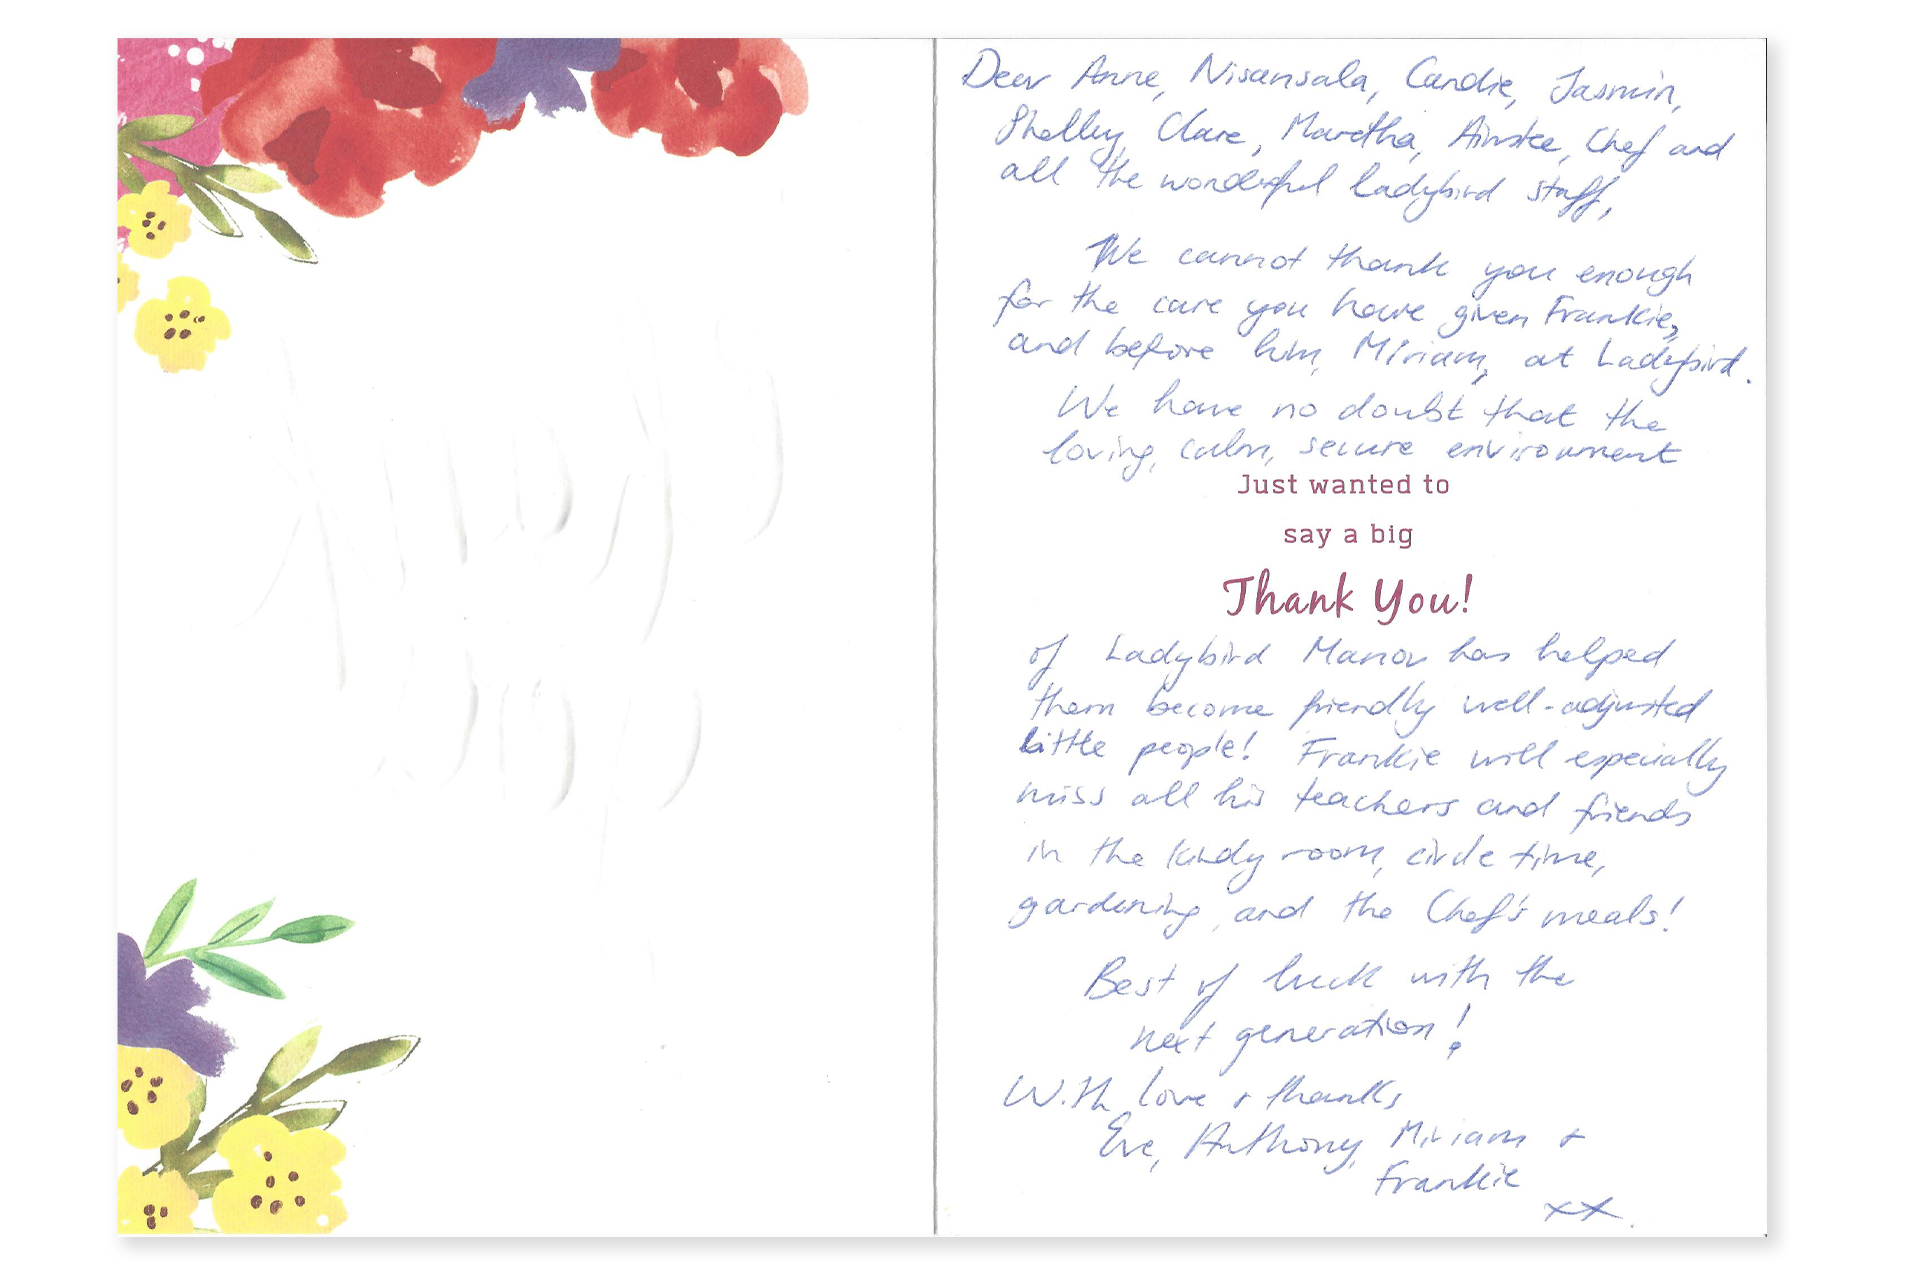 Dear Anne, Nisansala, Candie, Jasmin,
Shelley, Clare, Maretha, Ainslee, Chef and
all the wonderful ladybird staff,
We cannot thank you enough
for the care you have given Frankie,
and before him, Miriam, at Ladybird.
We have no doubt that the
loving, calm, secure environment
Just wanted to
say a big
Thank You!
of Ladybird Manor has helped
them become friendly well-adjusted
little people! Frankie will especially
miss all his teachers and friends
in the kindy room, circle time,
gardening, and the Chef's meals!
Best of luck with the
next generation!
With love + thanks
Eve, Anthony, Miriam +
Frankie
xx.